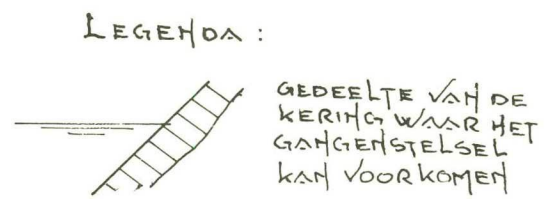 LEGENDA:
GEDEELTE VAN DE
KERING WAAR HET
GANGENSTELSEL
KAN VOORKOMEN